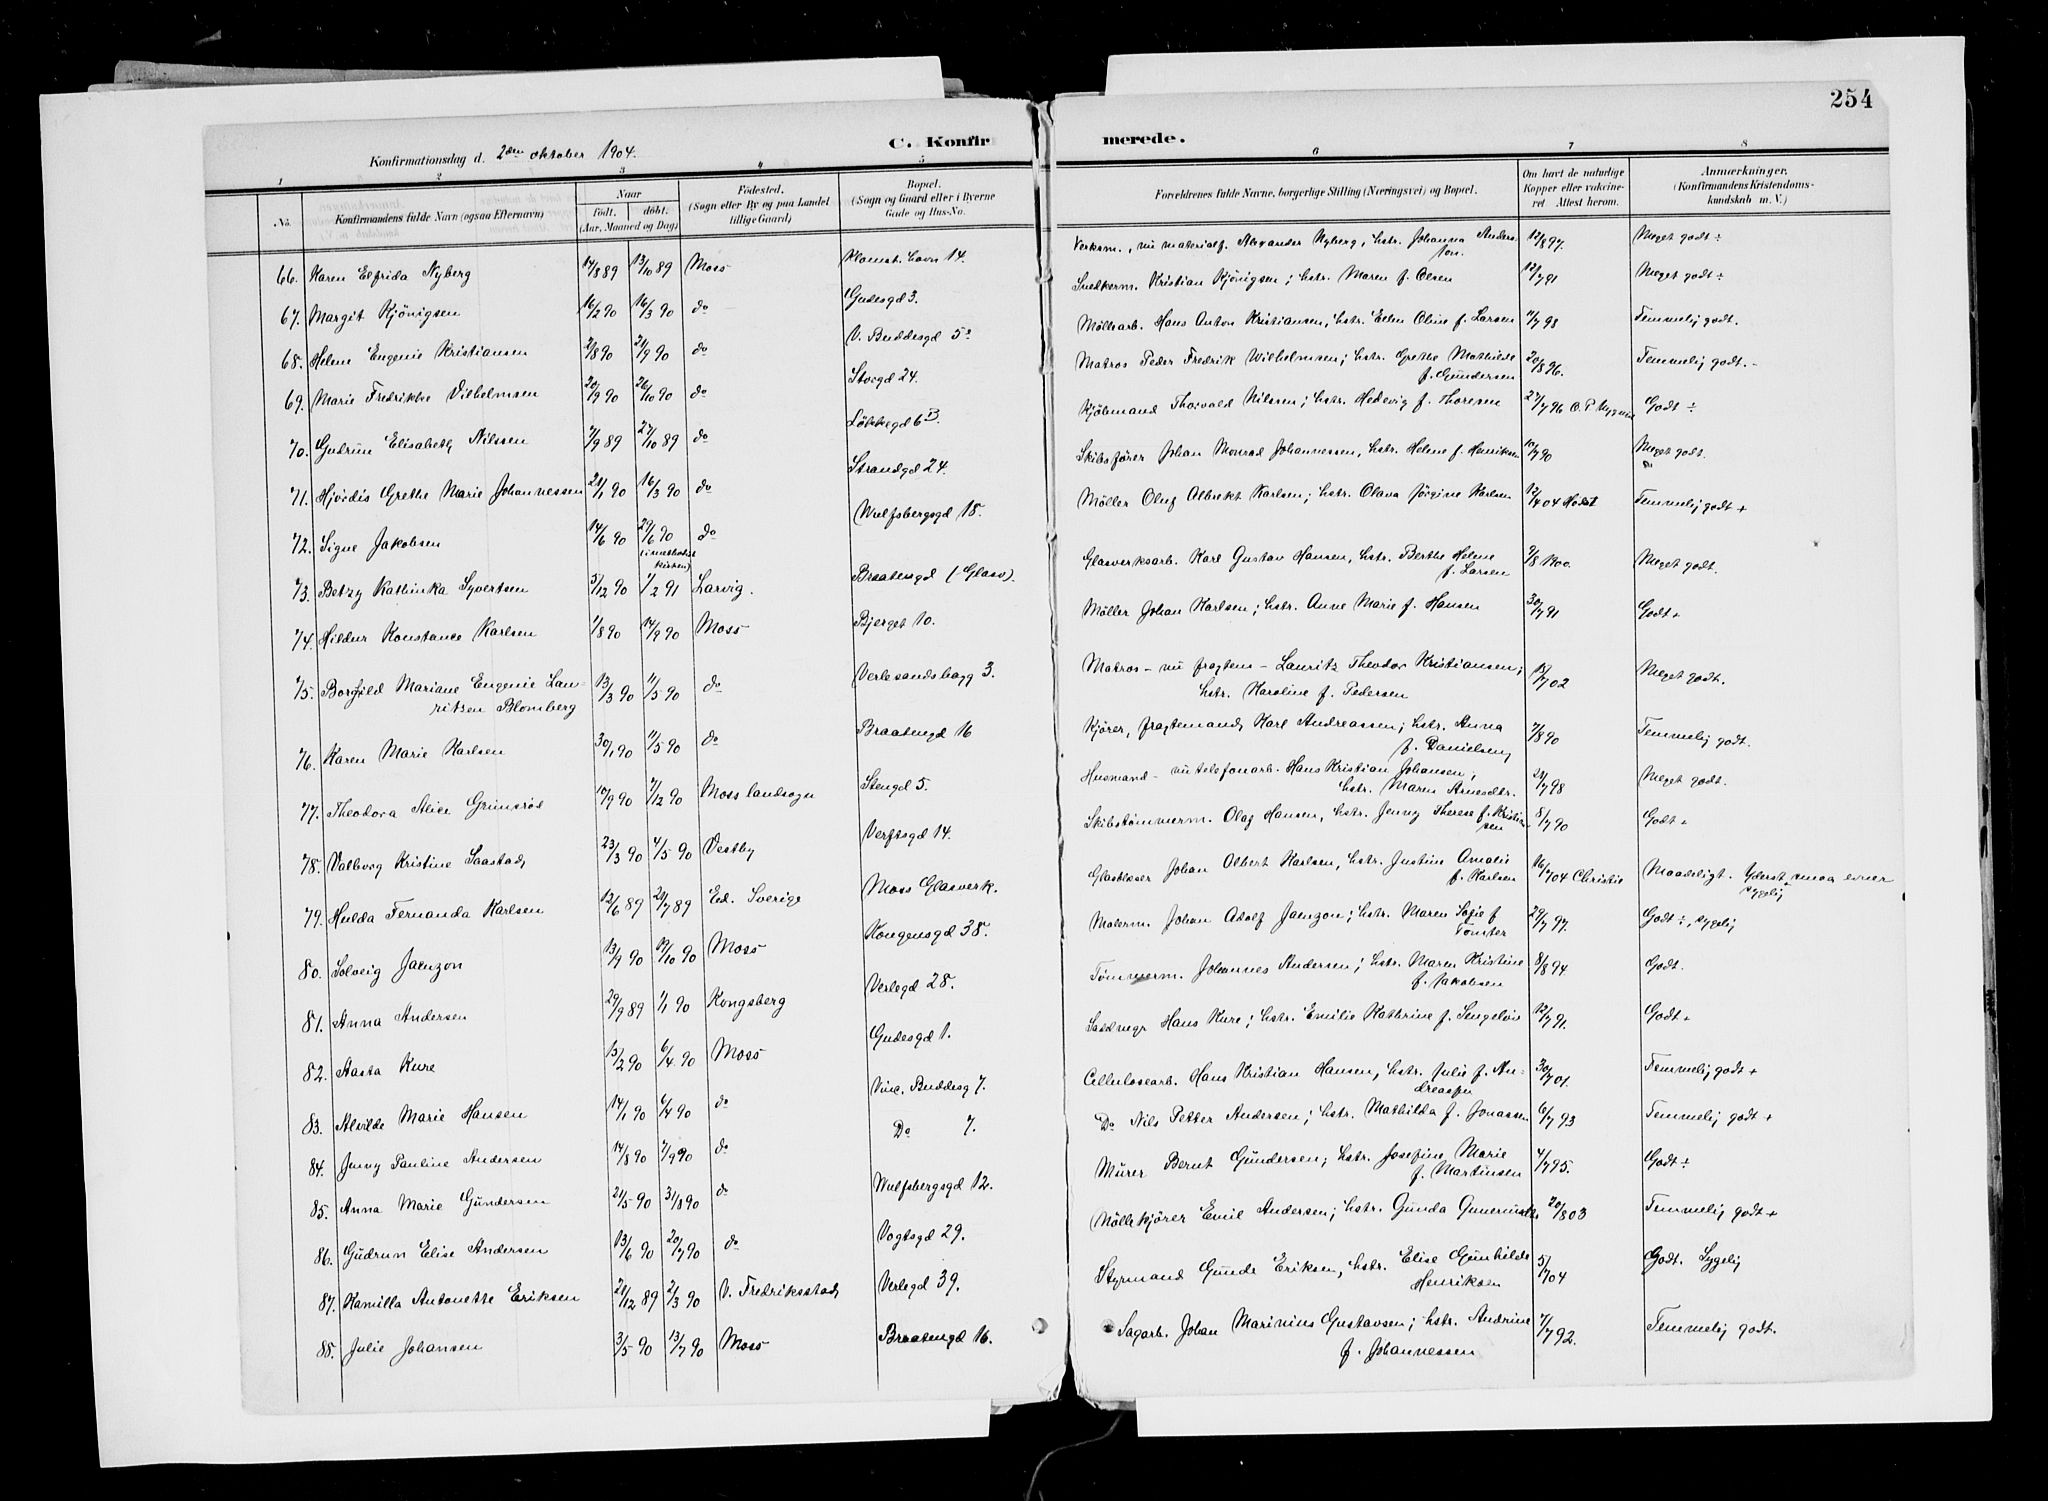 254
Konfirmationsdag d. 2den oktober 1904.
C. Konfirmerede.
1 2 3 4 5 6 7 8
No. Konfirmandens fulde Navn (ogsaa Efternavn) Naar födt. döbt. (Aar, Maaned og Dag) Födested. (Sogn eller By og paa Landet tillige Gaard) Bopæl. (Sogn og Gaard eller i Byerne Gade og Hus-No. Forældrenes fulde Navne, borgerlige Stilling (Næringsvei) og Bopæl. Om havt de naturlige Kopper eller vakcineret Attest herom. Anmærkninger. (Konfirmandens Kristendomskundskab m. V.)
66. Karen Elfrida Nyberg 14/8 89 13/10 89 Moss 14. Verksm., nu materialf. Alexander Nyberg, hstr. Johanna Andersson. 17/8 97. Meget godt ÷
67. Margit Kjönigsen 16/2 90 16/3 90 do Gudesgd 3. Snedkerm. Kristian Kjönigsen; hstr. Maren f. Olsen 12/7 91 Meget godt ÷
68. Helene Eugenie Kristiansen 2/8 90 21/9 90 do V. Buddesgd 5 Möllearb. Hans Anton Kristiansen, hstr. Ellen Oline f. Larsen 11/7 98 Temmelig godt.
69. Marie Fredrikke Vilhelmsen 20/9 90 26/10 90 do Storgd 24. Matros Peder Fredrik Wilhelmsen; hstr. Grethe Mathilde f. Gundersen 20/8 96. Temmelig godt. -
70. Gudrun Elisabeth Nilssen 7/9 89 27/10 89 do Lökkegd 6 B. Kjöbmand Thorvald Nilssen; hstr. Hedevig f. Thoresen 27/7 96 Godt ÷
71. Hjördis Grethe Marie Johannessen 21/1 90 16/3 90 do Strandgd 24. Skibsförer Johan Monrad Johannessen, hstr. Helene f. Henriksen 10/7 90 Meget godt.
72. Signe Jakobsen 14/6 90 29/6 90 (i methodistkirken) do Wulfsbergsgd 18. Möller Oluf Albrekt Karlsen; hstr. Olava Jörgine Karlsen 12/4 04 Temmelig godt +
73. Betzy Kathinka Syvertsen 5/12 90 1/2 91 Larvig. Braatengd (Glasv). Glasverksarb. Karl Gustav Hansen, hstr. Berthe Helene f. Larsen 2/8 1900. Meget godt.
74. Hildur Konstance Karlsen 1/8 90 14/9 90 Moss Bjerget 10. Möller Johan Karlsen; hstr. Anne Marie f. Hansen 30/7 91 Godt +
75. Borghild Mariane Eugenie Lauritzen Blomberg 13/3 90 11/5 90 do Verlesandsbagg 3. Matros - nu fragtem - Lauritz Theodor Kristiansen; hstr. Karoline f. Pedersen 12/7 02 Meget godt.
76. Karen Marie Karlsen 30/1 90 11/5 90 do Braatengd 16 Kjörer, fragtemand, Karl Andreassen; hstr. Anna f. Danielsen 7/8 90 Temmelig godt.
77. Theodora Alice Grimsröd 10/9 90 7/12 90 Moss landsogn Stengd 5. Husmand - nu telefonarb. Hans Kristian Johansen; hstr. Maren Arnesdtr. 21/7 98 Meget godt.
78. Valborg Kristine Saastad 23/3 90 4/5 90 Vestby Verftsgd 14. Skibstömmerm. Olaf Hansen, hstr. Jenny Therese f. Kristiansen 8/7 90 Godt +
79. Hulda Fernanda Karlsen 12/6 89 21/7 89 Ed. Sverige Moss Glasverk. Glasblæser Johan Albert Karlsen, hstr. Justine Amalie f. Karlsen 16/7 04 Christie Maadeligt. Yderst smaa evner + sygelig
80. Solveig Jaenzon 13/9 90 19/10 90 Moss Kongensgd 38. Malerm. Johan Adolf Jaenzon; hstr. Maren Sofie f Tömter 29/7 97. Godt ÷, sygelig
81. Anna Andersen 29/9 89 1/1 90 Kongsberg Verlegd 28. Tömmerm. Johannes Andersen; hstr. Maren Kristine f. Jakobsen 8/8 94 Godt.
82. Aasta Kure 13/2 90 6/4 90 Moss Gudesgd 1. Hans Kure; hstr. Emilie Kathrine f. Sengelöv 12/7 91. Godt +
83. Alvilde Marie Hansen 14/1 90 6/4 90 do Vinc. Buddesg 7. Cellulosearb. Hans Kristian Hansen, hstr. Julie f. Andreassen 30/7 01. Temmelig godt +
84. Jenny Pauline Andersen 14/8 90 7/9 90 do Do 7. Do Nils Petter Andersen; hstr. Mathilda f. Jonassen 6/7 93 Temmelig godt +
85. Anna Marie Gundersen 21/5 90 31/8 90 do Wulfsbergsgd 12. Murer Bernt Gundersen; hstr. Josefine Marie f. Martinsen 4/7 95. Godt ÷
86. Gudrun Elise Andersen 13/6 90 20/7 90 do Vogtsgd 29. Möllekjörer Emil Andersen; hstr. Gunda 20/8 03 Temmelig godt +
87. Kamilla Antonette Eriksen 21/12 89 2/3 90 V. Fredriksstad Verlegd 39. Styrmand Gunde Eriksen, hstr. Elise Gunhilde Henriksen 5/7 04 Godt. Sygelig
88. Julie Johansen 3/5 90 13/7 90 Moss Braatengd 16. Sagarb. Johan Marinius Gustavsen; hstr. Andrine f. Johannessen 7/7 92. Temmelig godt.